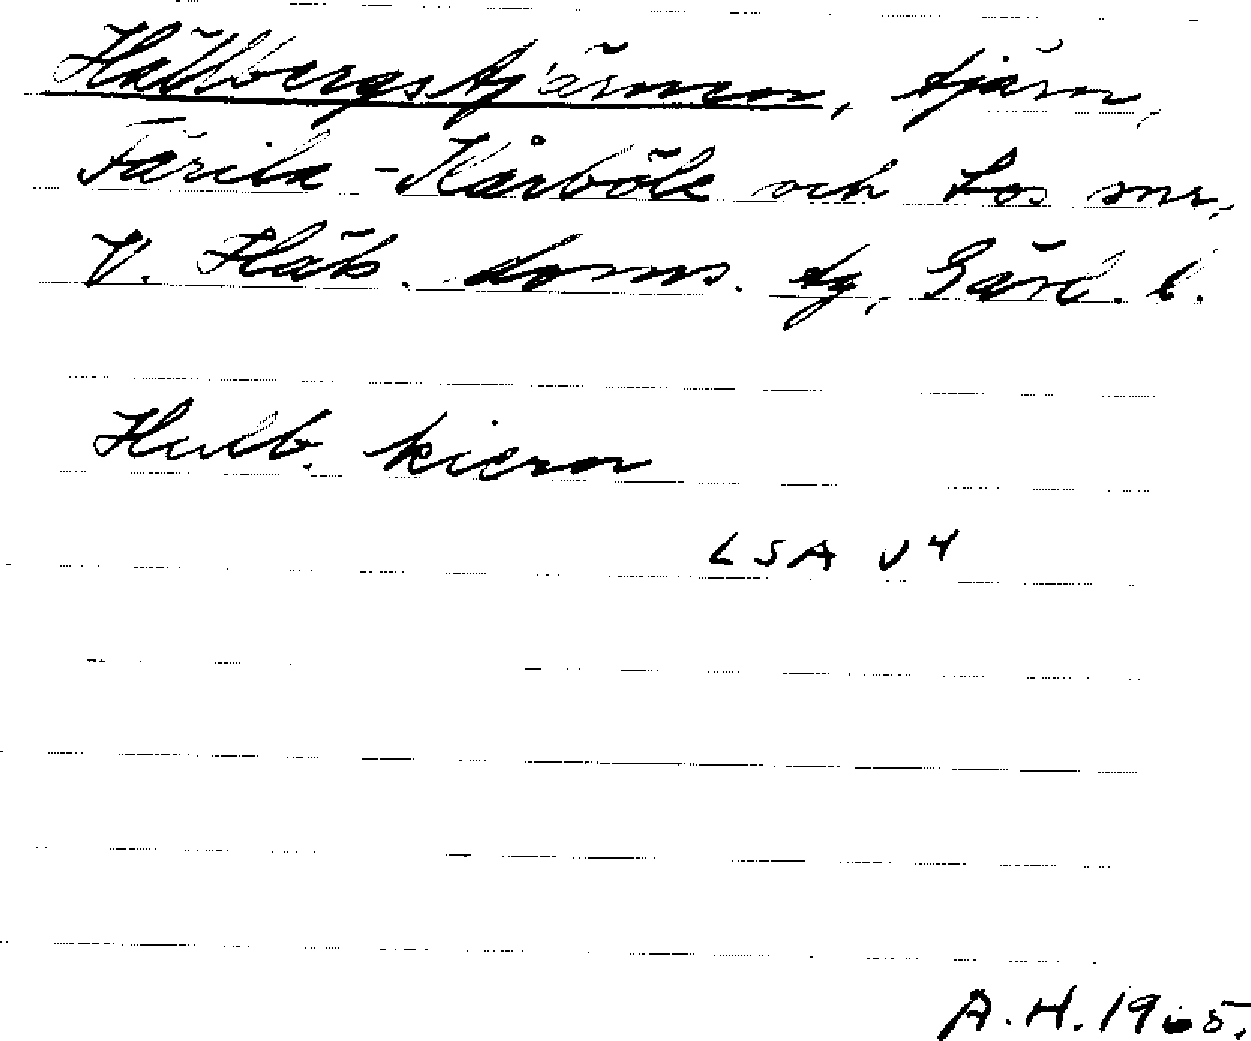 Hällbergstjärnen, tjärn,
Färila-Kårböle och Los snr,
V. Häls. doms. tg, Gävl. l.
Hullb. kiern
LSA J4
A.H. 1965.